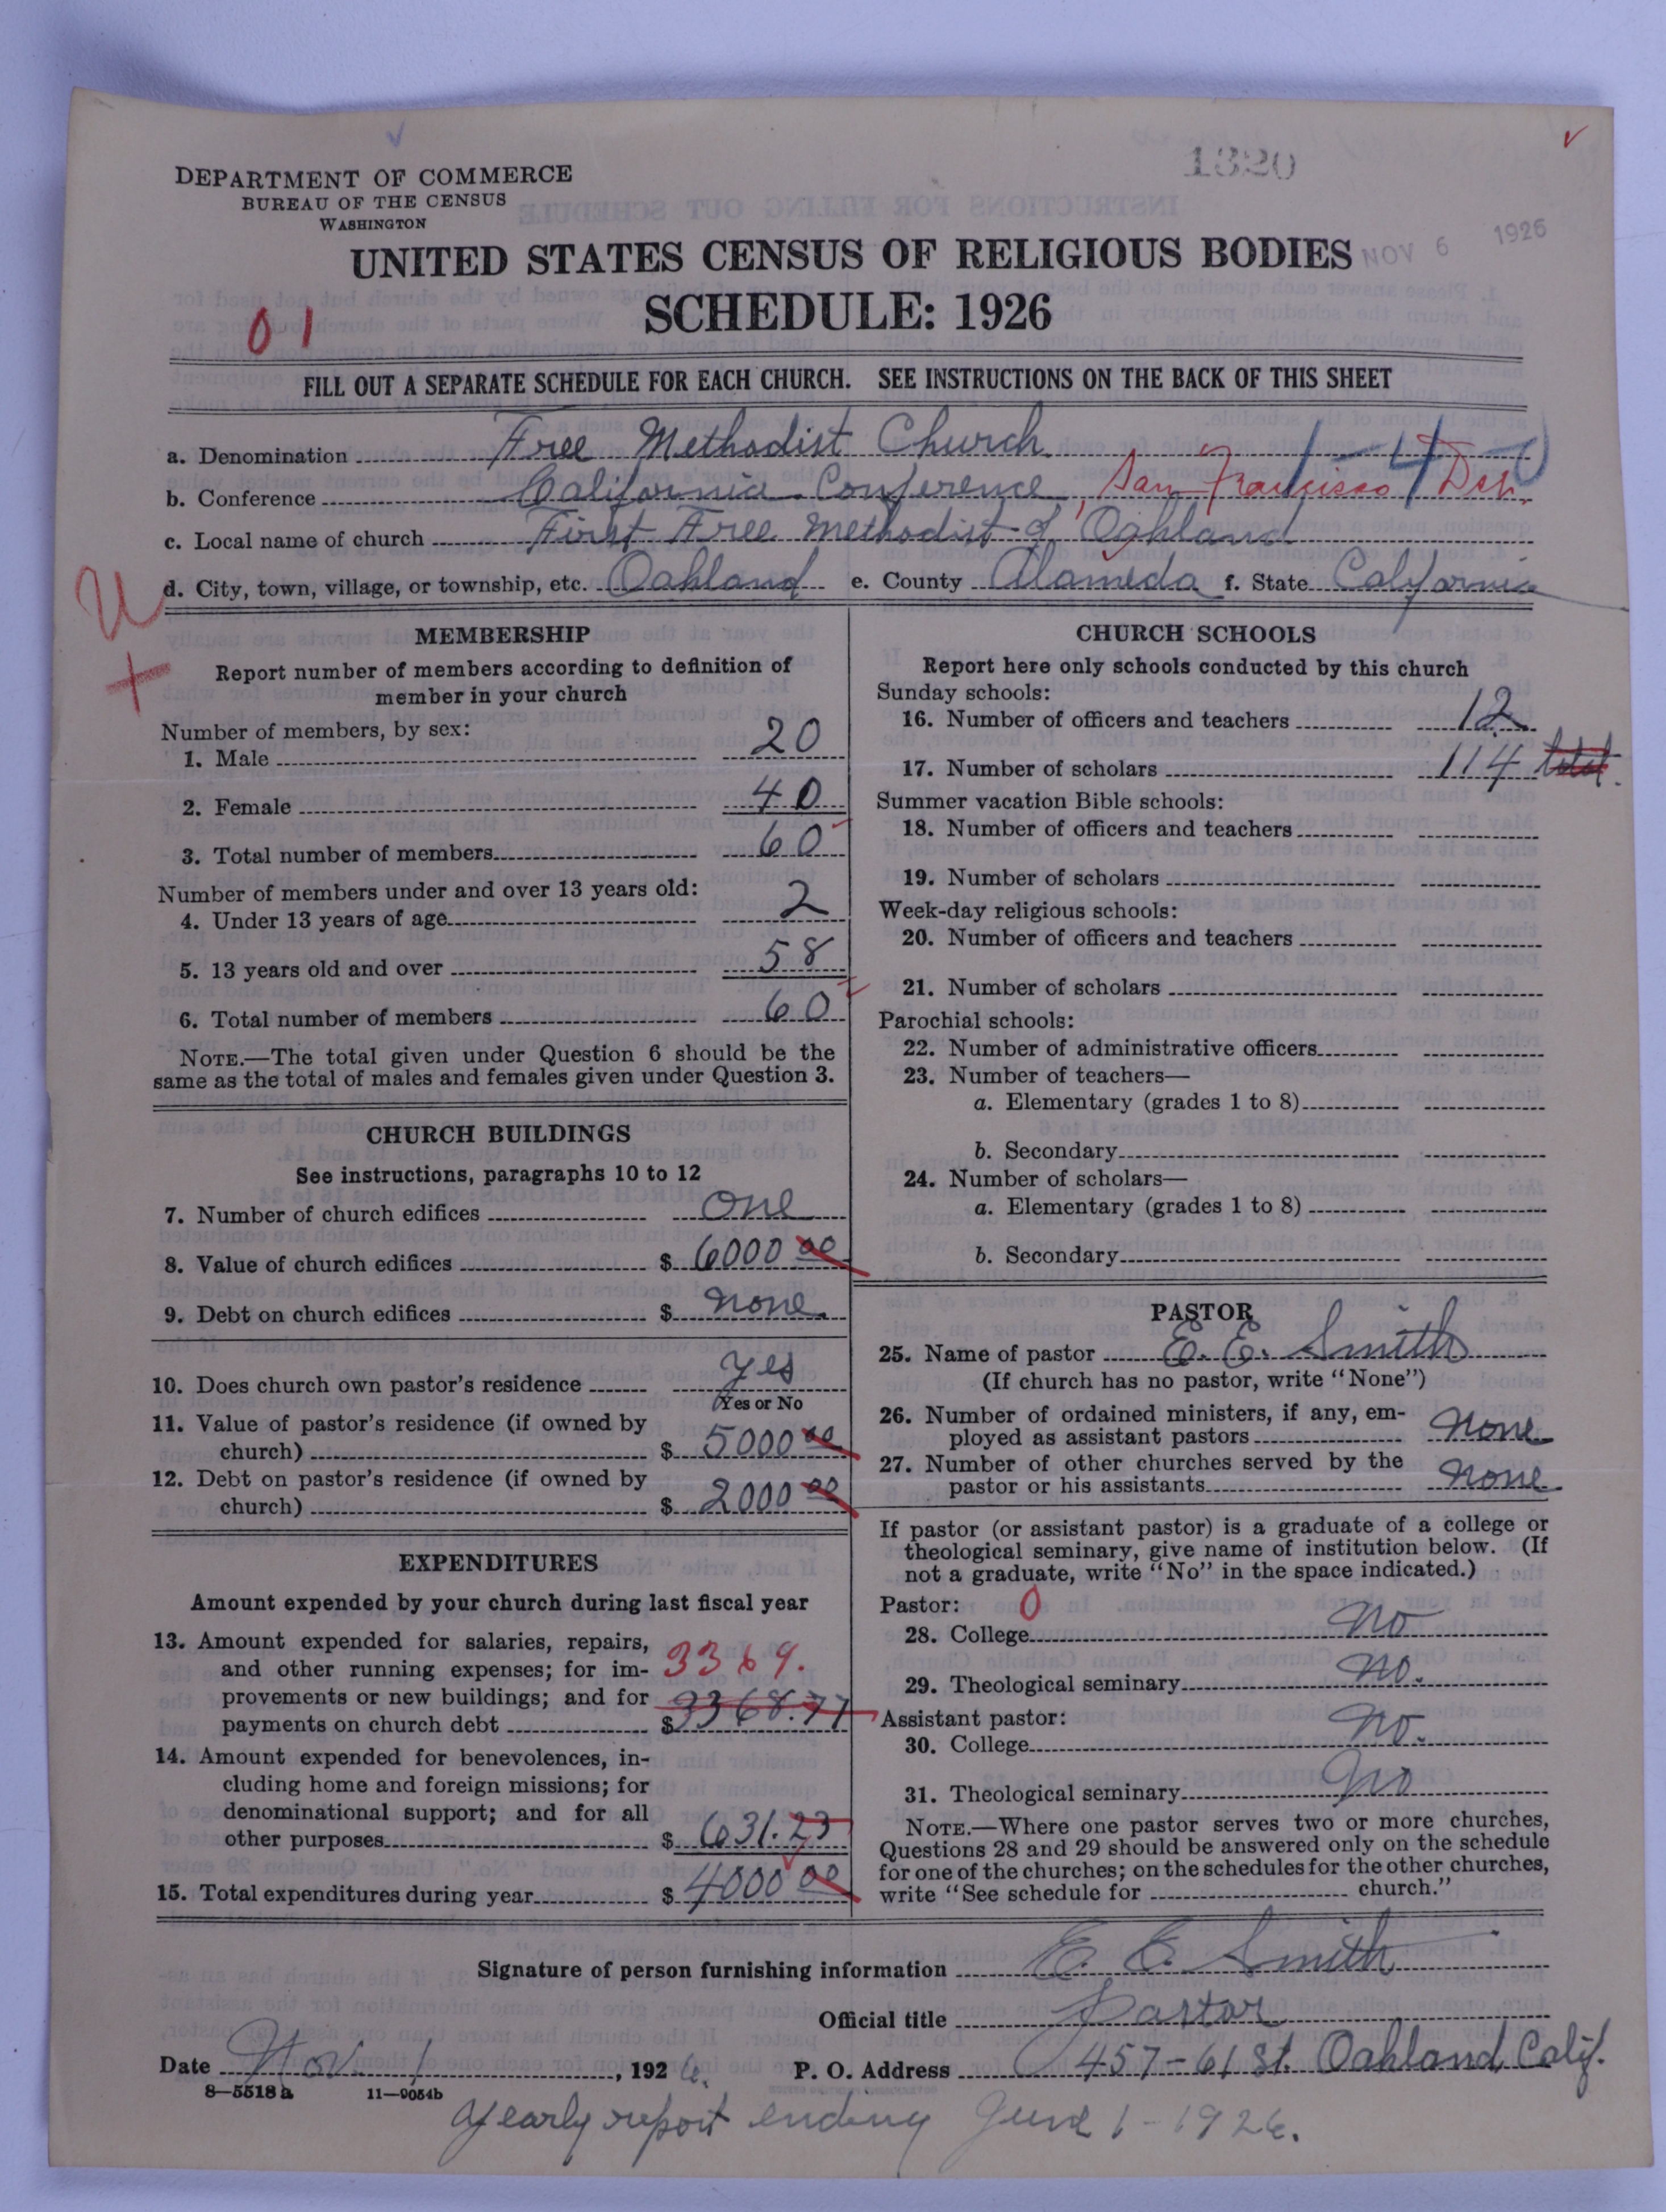 1320
DEPARTMENT OF COMMERCE
BUREAU OF THE CENSUS
WASHINGTON
NOV 6 1926
UNITED STATES CENSUS OF RELIGIOUS BODIES
SCHEDULE: 1926
01
FILL OUT A SEPARATE SCHEDULE FOR EACH CHURCH. SEE INSTRUCTIONS ON THE BACK OF THIS SHEET
a. Denomination Free Methodist Church 1-40
b. Conference California Conference, San Francisco Dist.
c. Local name of church First Free Methodist of Oakland
d. City, town, village, or township, etc. Oakland e. County Alameda f. State California
U
+
MEMBERSHIP
Report number of members according to definition of
member in your church
Number of members, by sex:
1. Male 20
2. Female 40
3. Total number of members 60
Number of members under and over 13 years old:
4. Under 13 years of age 2
5. 13 years old and over 58
6. Total number of members 60
NOTE.—The total given under Question 6 should be the
same as the total of males and females given under Question 3.
CHURCH BUILDINGS
See instructions, paragraphs 10 to 12
7. Number of church edifices one
8. Value of church edifices $ 6000 00
9. Debt on church edifices $ none.
10. Does church own pastor's residence yes
Yes or No
11. Value of pastor's residence (if owned by
church) $ 5000 00
12. Debt on pastor's residence (if owned by
church) $ 2000 00
EXPENDITURES
Amount expended by your church during last fiscal year
13. Amount expended for salaries, repairs,
and other running expenses; for im- 3369.
provements or new buildings; and for
payments on church debt $ 3368.77
14. Amount expended for benevolences, in-
cluding home and foreign missions; for
denominational support; and for all
other purposes $ 631.23
15. Total expenditures during year $ 4000 00
CHURCH SCHOOLS
Report here only schools conducted by this church
Sunday schools:
16. Number of officers and teachers 12
17. Number of scholars 114 total.
Summer vacation Bible schools:
18. Number of officers and teachers
19. Number of scholars
Week-day religious schools:
20. Number of officers and teachers
21. Number of scholars
Parochial schools:
22. Number of administrative officers
23. Number of teachers—
a. Elementary (grades 1 to 8)
b. Secondary
24. Number of scholars—
a. Elementary (grades 1 to 8)
b. Secondary
PASTOR
25. Name of pastor E. E. Smith
(If church has no pastor, write "None")
26. Number of ordained ministers, if any, em-
ployed as assistant pastors none
27. Number of other churches served by the
pastor or his assistants none
If pastor (or assistant pastor) is a graduate of a college or
theological seminary, give name of institution below. (If
not a graduate, write "No" in the space indicated.)
Pastor: 0
28. College no
29. Theological seminary no.
Assistant pastor:
30. College no.
31. Theological seminary no
NOTE.—Where one pastor serves two or more churches,
Questions 28 and 29 should be answered only on the schedule
for one of the churches; on the schedules for the other churches,
write "See schedule for church."
Signature of person furnishing information E. E. Smith
Official title Pastor
Date Nov. 1, 1926. P. O. Address 457-61 St. Oakland, Calif.
8-5518 a 11-9054b
yearly report ending June 1-1926.